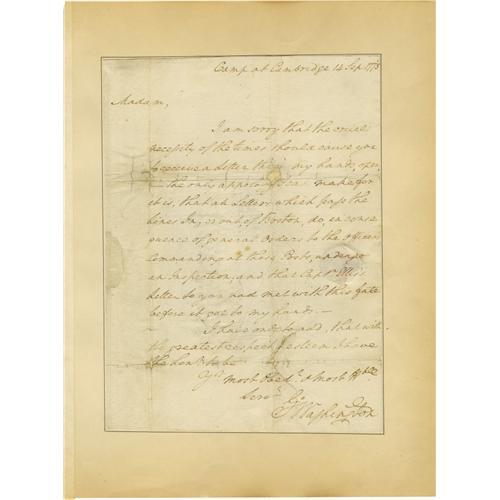 Camp at Cambridge 14 Sep 1775
Madam,
I am sorry that the cruel
necessity of the times should cause you
to receive a letter thro' my hands, open
— the only apology I can make for
it is, that all Letters which pass the
Lines In, or out of Boston, do, in conse
quence of general Orders to the Officers
Commanding at those Posts, undergo
an Inspection; and that Captn Ellis's
Letter to you had met with this fate
before it got to my hands. —
I have only to add, that with
the greatest respect & esteem I have
the honr. to be
Yr. most Obedt. & most Hble
Servt.
Go: Washington